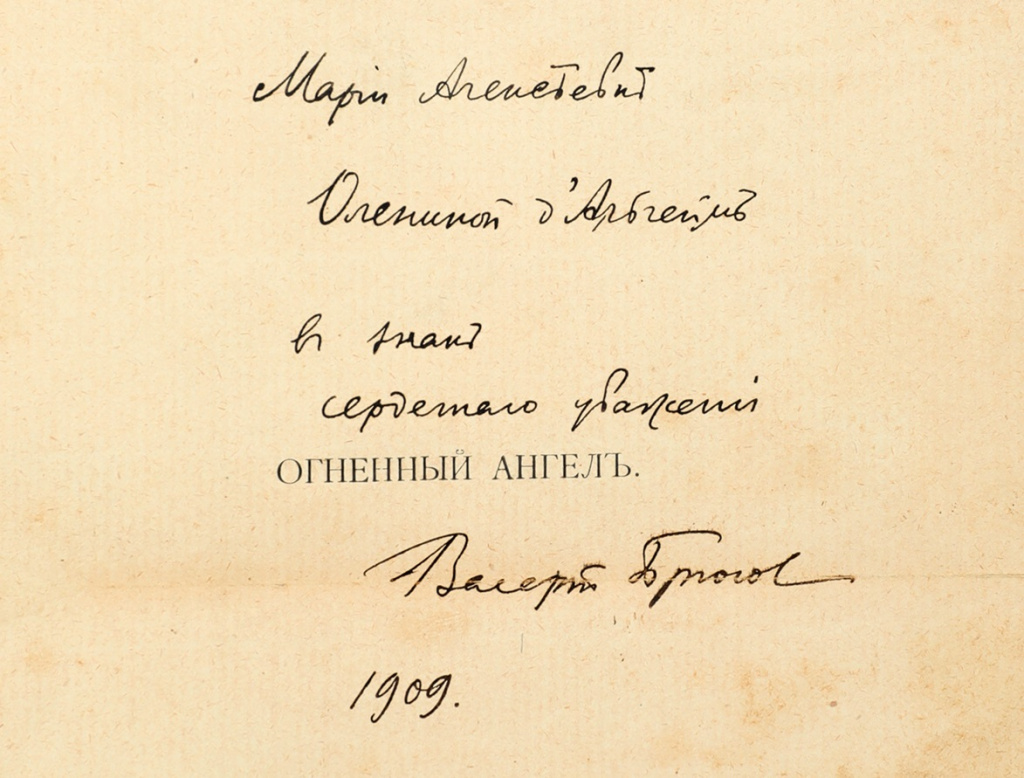 Маріи Алексѣевнѣ
Олениной д'Альгеймъ
въ знакъ
сердечнаго уваженія
ОГНЕННЫЙ АНГЕЛЪ.
Валерій Брюсов
1909.